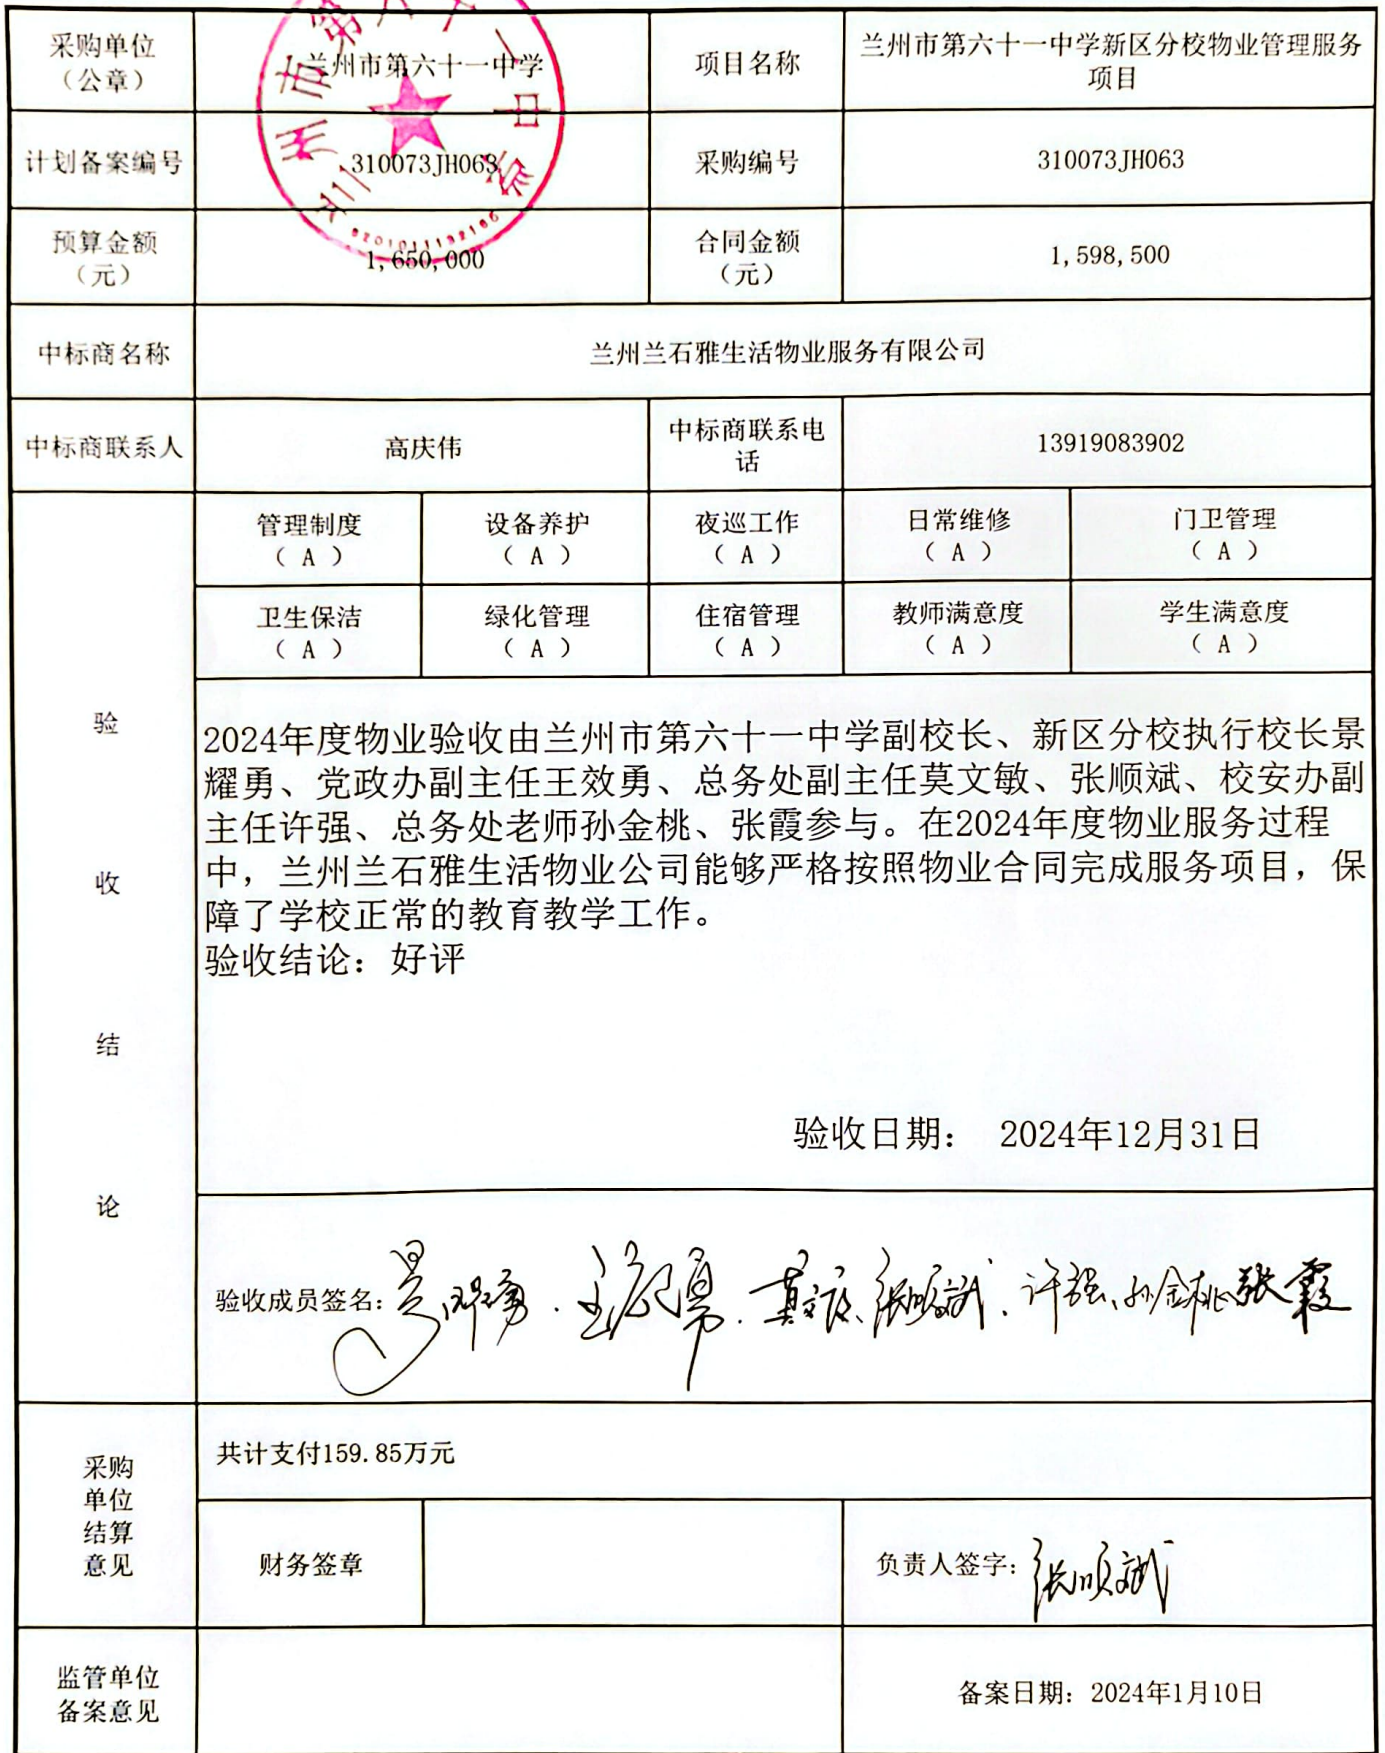 采购单位
（公章）
兰州市第六十一中学
项目名称
兰州市第六十一中学新区分校物业管理服务
项目
计划备案编号
310073JH063
采购编号
310073JH063
预算金额
（元）
1,650,000
合同金额
（元）
1,598,500
中标商名称
兰州兰石雅生活物业服务有限公司
中标商联系人
高庆伟
中标商联系电
话
13919083902
管理制度
（ A ）
设备养护
（ A ）
夜巡工作
（ A ）
日常维修
（ A ）
门卫管理
（ A ）
卫生保洁
（ A ）
绿化管理
（ A ）
住宿管理
（ A ）
教师满意度
（ A ）
学生满意度
（ A ）
验
收
结
论
2024年度物业验收由兰州市第六十一中学副校长、新区分校执行校长景
耀勇、党政办副主任王效勇、总务处副主任莫文敏、张顺斌、校安办副
主任许强、总务处老师孙金桃、张霞参与。在2024年度物业服务过程
中，兰州兰石雅生活物业公司能够严格按照物业合同完成服务项目，保
障了学校正常的教育教学工作。
验收结论：好评
验收日期： 2024年12月31日
验收成员签名：景耀勇．王效勇．莫文敏、张顺斌．许强、孙金桃、张霞
采购
单位
结算
意见
共计支付159.85万元
财务签章
负责人签字：张顺斌
监管单位
备案意见
备案日期：2024年1月10日